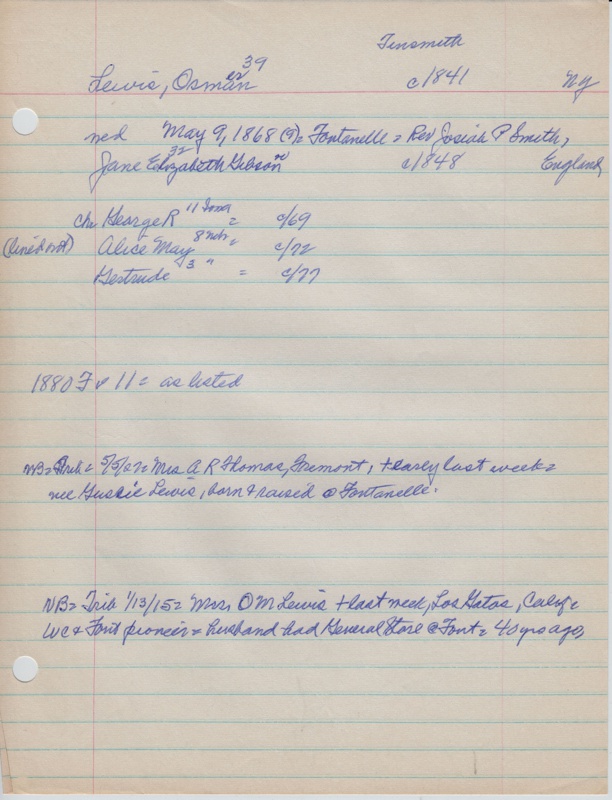 Tinsmith
Lewis, Osman er 39 c1841 NY
md May 9, 1868 (9) = Fontanelle = Rev Josiah P Smith,
Jane Elizabeth Gibson 32 c1848 England
Ch: George R 11 Iowa = c/69
(lined out) Alice May 8 Neb = c/72
Gertrude 3 " = c/77
1880 F & 11 = as listed
NB = Trib = 5/5/27 = Mrs A R Thomas, Fremont, + early last week =
nee Gussie Lewis, born & raised @ Fontanelle.
NB = Trib 1/13/15 = Mrs O M Lewis + last week, Los Gatos, Calif =
WC & Font pioneer = husband had General Store @ Font = 40 yrs ago,